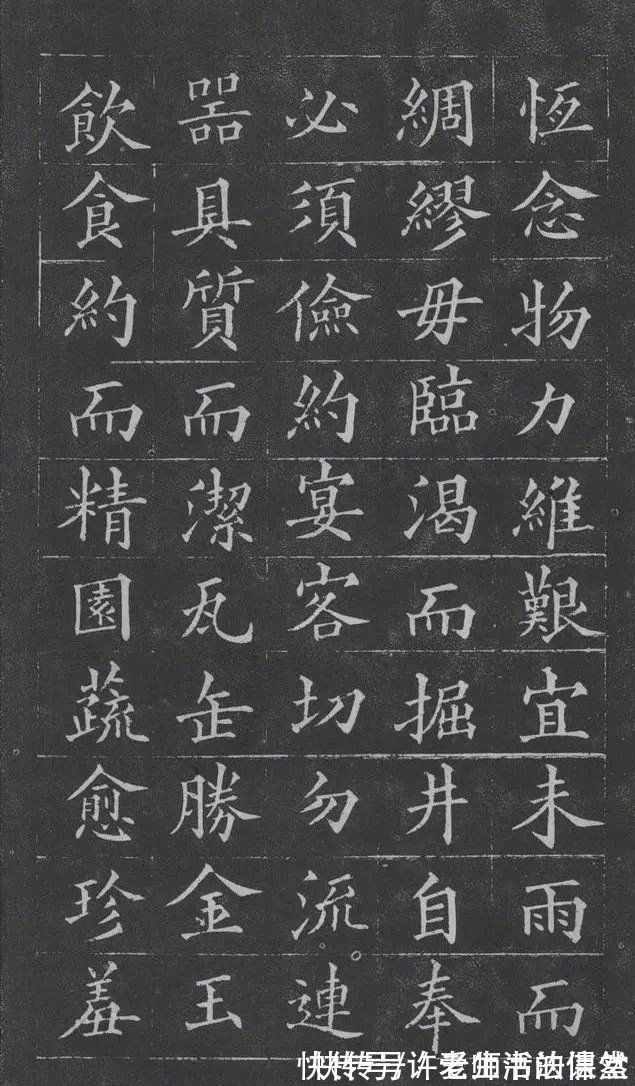 恆念物力維艱宜未雨而
綢繆毋臨渴而掘井自奉
必須儉約宴客切勿流連
器具質而潔瓦缶勝金玉
飲食約而精園蔬愈珍羞
快传号/许老师